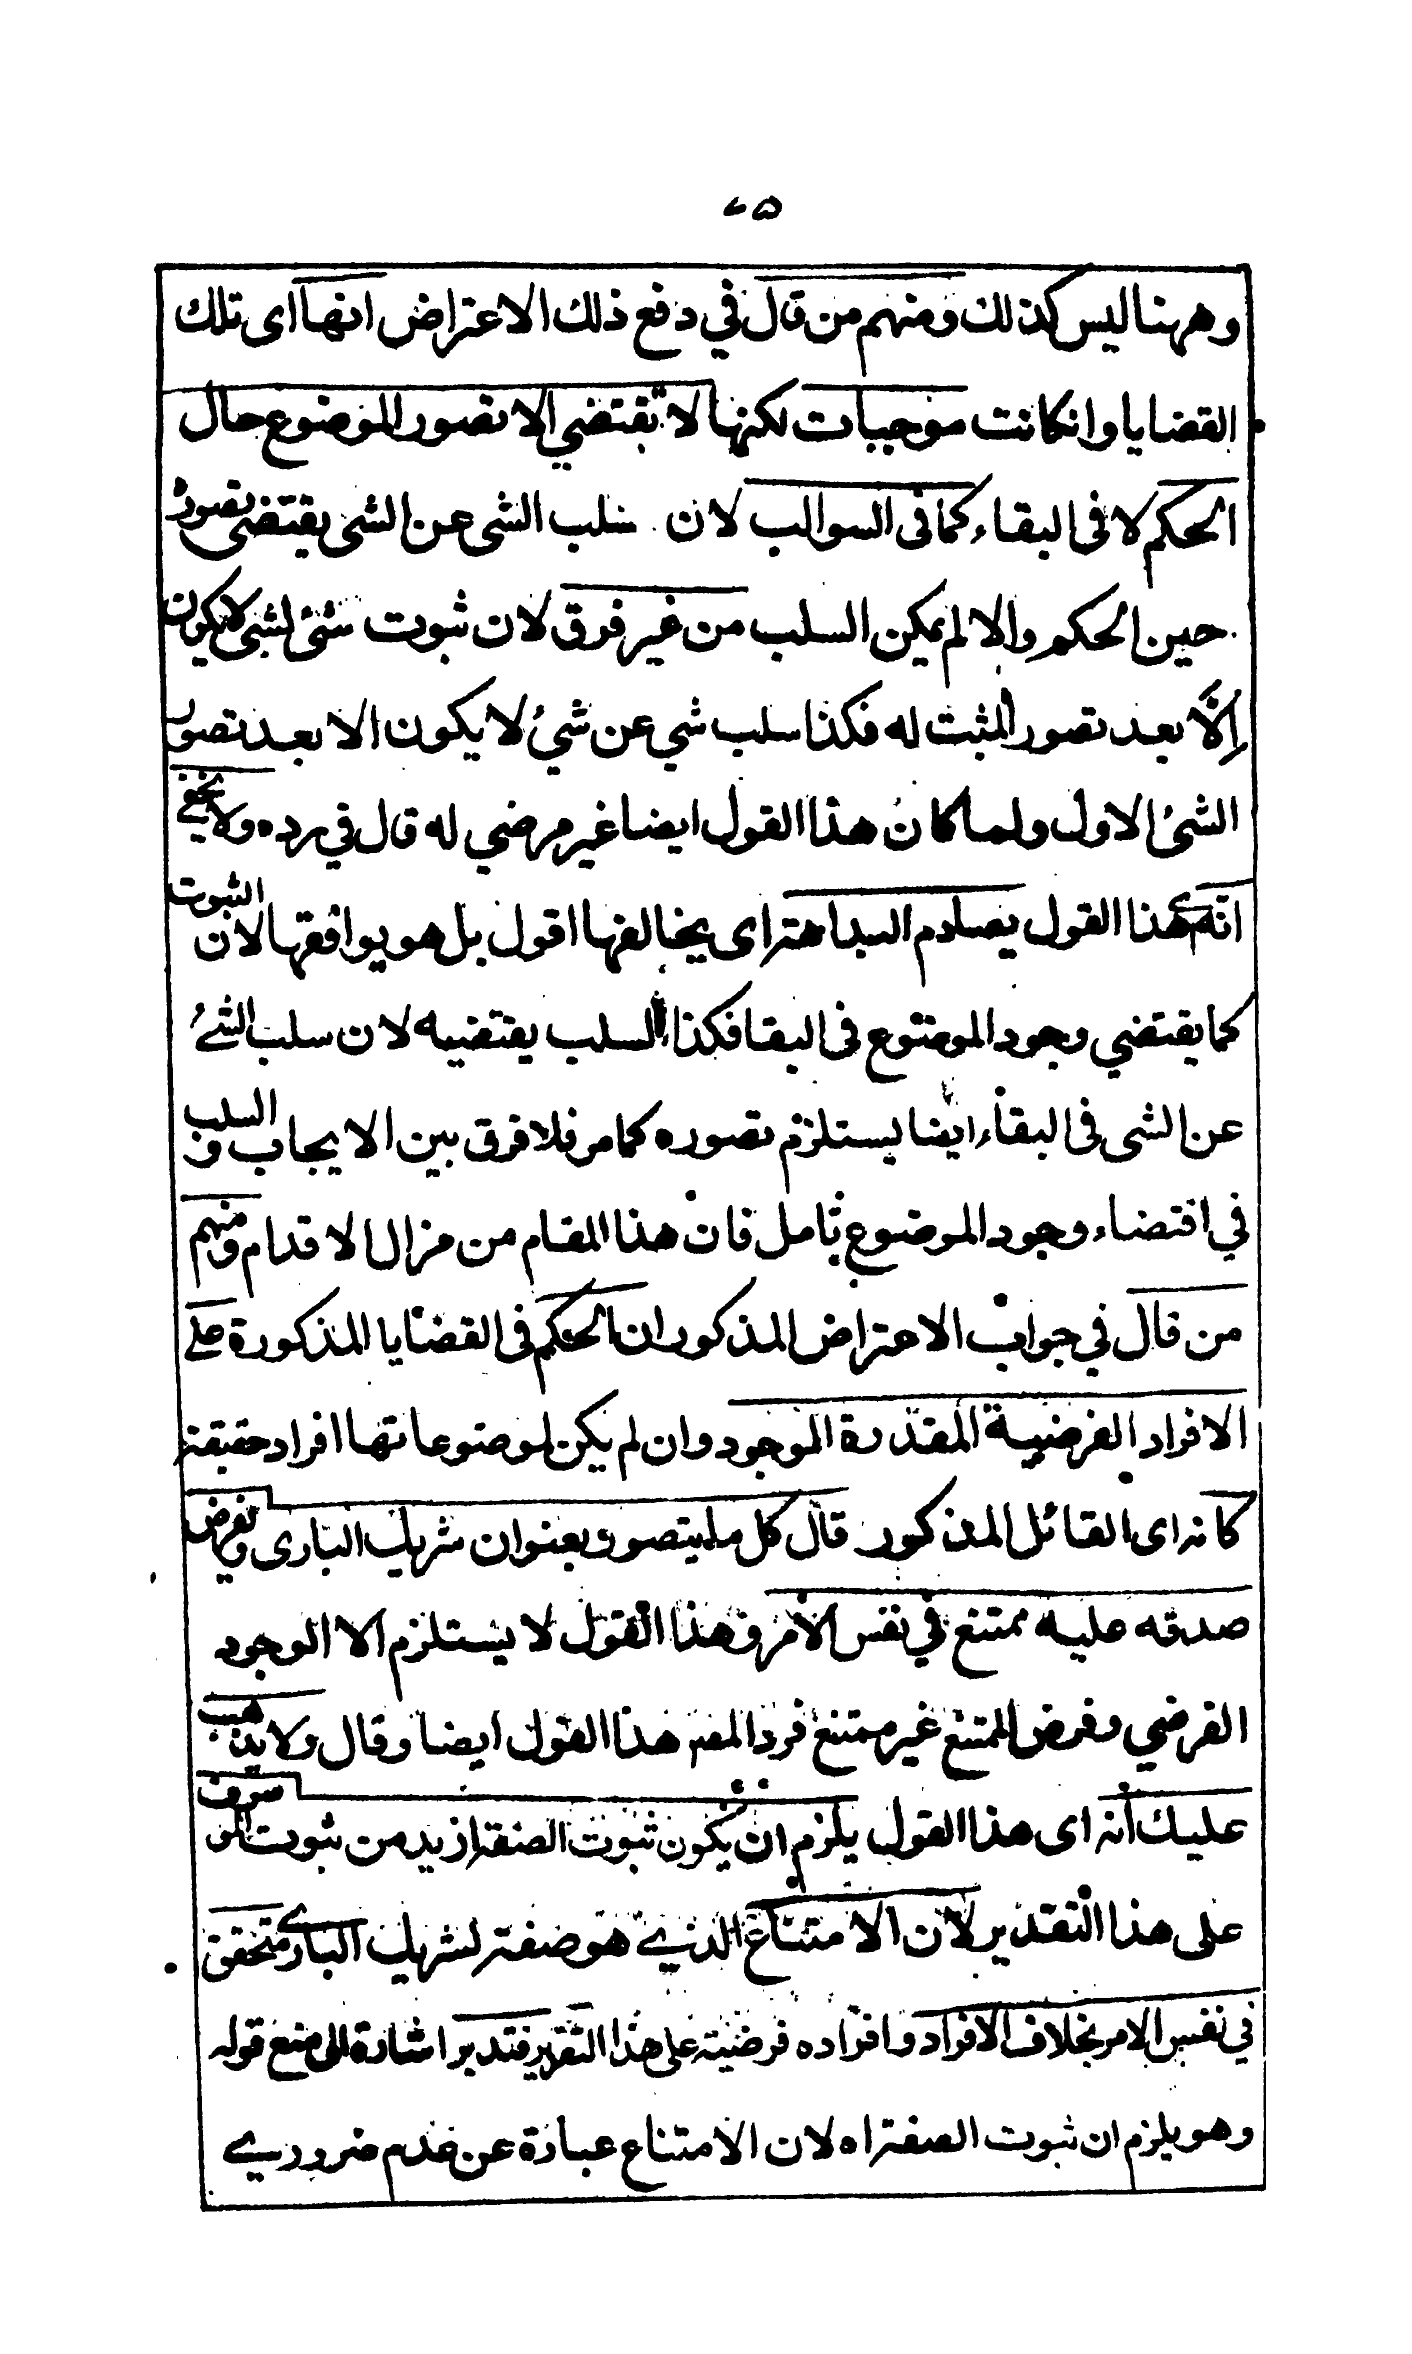 ٧٥
وههنا ليس كذلك ومنهم من قال في دفع ذلك الاعتراض انها اى تلك
القضايا وانكانت موجبات لكنها لا تقتضي الا تصور الموضوع حال
الحكم لا فى البقاء كما فى السوالب لان سلب الشى عن الشى يقتضى تصوره
حين الحكم والا لم يمكن السلب من غير فرق لان ثبوت شئ لشئ لا يكون
إلّا بعد تصور المثبت له فكذا سلب شي عن شئ لا يكون الا بعد تصور
الشئ الاول ولما كان هذا القول ايضا غير مرضي له قال في رده ولا يخفے
انه هذا القول يصادم البداهة اى يخالفها اقول بل هو يوافقها لان الثبوت
كما يقتضي وجود الموضوع فى البقا فكذا السلب يقتضيه لان سلب الشئ
عن الشى فى البقاء ايضا يستلزم تصوره كما مر فلا فرق بين الايجاب و السلب
في اقتضاء وجود الموضوع تامل فان هذا المقام من مزال الاقدام ومنهم
من قال في جواب الاعتراض المذكور ان الحكم فى القضايا المذكورة علے
الافراد الفرضية المقدرة الموجود وان لم يكن لموضوعاتها افراد حقيقة
كانه اى القائل المذكور قال كل ما يتصور بعنوان شريك البارى ويفرض
صدقه عليه ممتنع في نفس الأمر وهذا القول لا يستلزم الا الوجود
الفرضي وفرض الممتنع غير ممتنع فرد المصنه هذا القول ايضا وقال ولا يذهب
عليك أنه اى هذا القول يلزم ان يكون ثبوت الصفة ازيد من ثبوت الموصوف
على هذا التقدير لان الامتناع الذے هو صفة لشريك البارے متحقق
في نفس الامر بخلاف الافراد وافراده فرضية على هذا التقدير فتدبر اشارة الى منع قوله
وهو يلزم ان ثبوت الصفة اه لان الامتناع عبارة عن عدم ضرورے